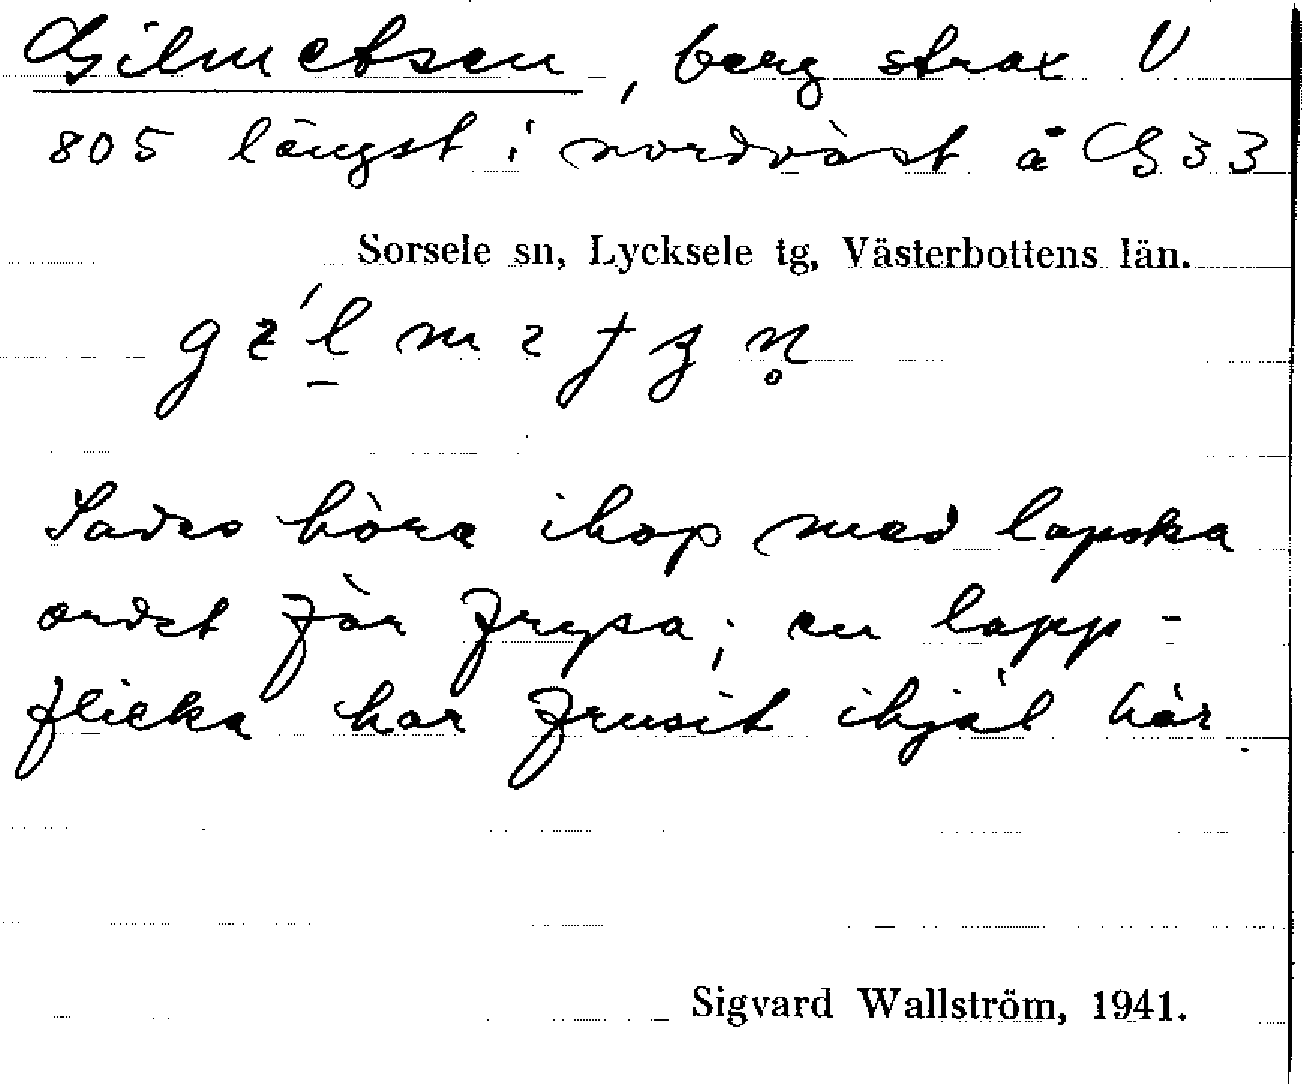 Gilmetsen, berg strax V
805 längst i nordväst å G33
Sorsele sn, Lycksele tg, Västerbottens län.
Sades höra ihop med lapska
ordet för frysa; en lapp-
flicka har frusit ihjäl här.
Sigvard Wallström, 1941.